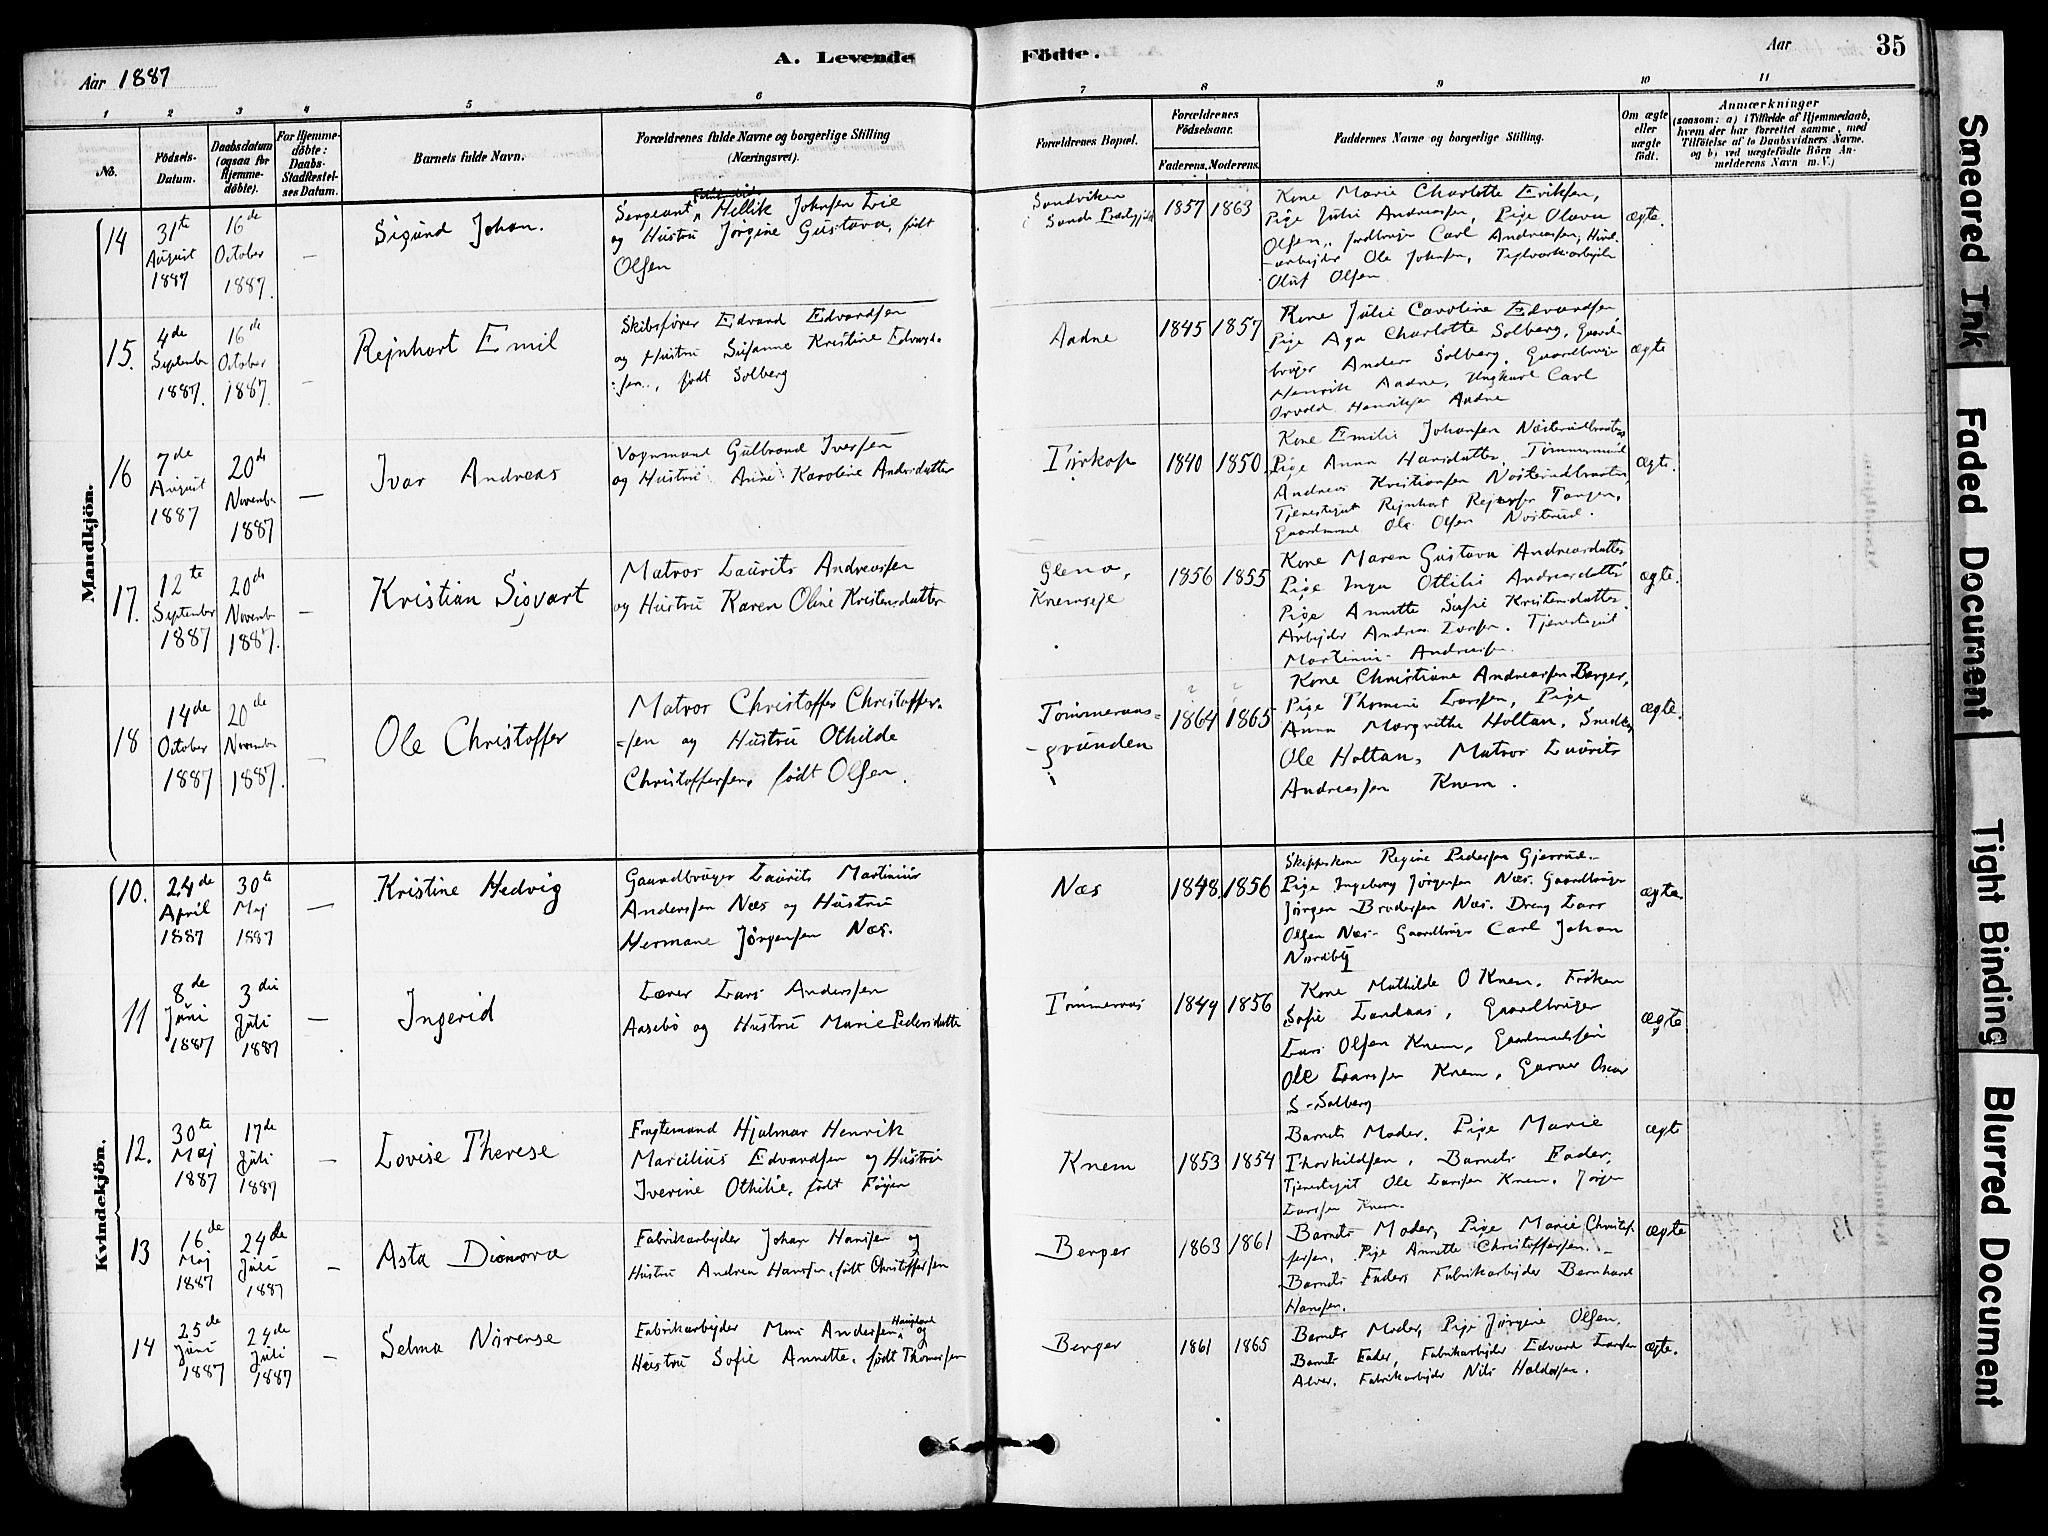 Aar 1887
A. Levende Födte.
Aar 35
1 2 3 4 5 6 7 8 9 10 11
No.
Födsels-Datum.
Daabsdatum (ogsaa for Hjemmedöbte).
For Hjemmedöbte: Daabs-Stadfæstelses Datum.
Barnets fulde Navn.
Forældrenes fulde Navne og borgerlige Stilling (Næringsvei).
Forældrenes Bopæl.
Forældrenes Födselsaar.
Faderens. Moderens.
Faddernes Navne og borgerlige Stilling.
Om ægte eller uægte født.
Anmærkninger
(saasom: a) i Tilfælde af Hjemmedaab, hvem der har forrettet samme, med Tilföielse af to Daabsvidners Navne, og b) ved uægtefödte Börn Anmelderens Navn m. V.)
Mandkjön.
14
31te August 1887
16de October 1887.
—
Sigurd Johan.
Sergeant Hellik Johnsen Lie
og Hustru Jørgine Gustava, født
Olsen
Sandviken
Sande Præstegjeld
1857 1863
Kone Marie Charlotte Eriksen,
Pige Julie Andreasen, Pige Olava
Olsen, Jordbruger Carl Andreassen,
-arbejder Ole Johnsen, Teglværksarbejder
Oluf Olsen
ægte.
15.
4de September 1887.
16de October 1887.
—
Rejnhart Emil
Skibsfører Edvard Edvardsen
og Hustru Susanne Kristine Edvard-
sen, født Solberg
Aadne
1845 1857
Kone Julie Caroline Edvardsen
Pige Aga Charlotte Solberg, Gaard-
bruger Anders Solberg, Gaardbruger
Henrik Aadne, Ungkarl Carl
Henriksen Aadne
ægte
16
7de August 1887
20de November 1887
—
Ivar Andreas
Vognmand Gulbrand Iversen
og Hustru Anne Karoline Andersdatter
1840 1850
Kone Emilie Johansen
Pige Anna Hansdatter, Tømmermand
Andreas Kristiansen
Tjenestegut Rejnhart Tangen,
Gaardmand Ole Olsen
ægte.
17.
12te September 1887
20de November 1887.
—
Kristian Sigvart
Matros Laurits Andreassen
og Hustru Karen Oline Kristensdatter
Glena,
Knemseje
1856 1855
Kone Maren Gustava Andreasdatter
Pige Inga Ottilie Andreasdatter
Pige Annette Sofie Kristensdatter.
Arbejder Andreas Larsen. Tjenestegut
Martinius Andreassen
ægte.
18
14de October 1887
20de November 1887.
—
Ole Christoffer
Matros Christoffer Christoffer-
sen og Hustru Othilde
Christoffersen, født Olsen.
Tømmeraas-
-grunden
1864 1865
Kone Christiane Andreassen Berger,
Pige Thomine Larsen, Pige
Anna Margrethe Holtan, Snedker
Ole Holtan, Matros Laurits
Andreassen Knem.
ægte.
Kvindekjön.
10.
24de April 1887
30te Maj 1887
—
Kristine Hedvig
Gaardbruger Laurits Martinius
Anderssen Næs og Hustru
Hermane Jørgensen Næs.
Næs
1848. 1856
Skipperkone Regine Pedersen
Pige Ingeborg Jørgensen Næs. Gaardbruger
Jørgen Brodersen Næs. Dreng Lars
Olsen Næs. Gaardbruger Carl Johan
Nordby
ægte
11
8de Juni 1887
3die Juli 1887
—
Ingerid
Lærer Lars Anderssen
Aasebö og Hustru Marie Pedersdatter
Tømmeraas
1849 1856
Kone Mathilde O Knem. Frøken
Sofie Landaas, Gaardbruger
Lars Olsen Knem,
Ole Larssen Knem, Garver Oscar
S. Solberg
ægte
12.
30te Maj 1887
17de Juli 1887
—
Lovise Therese
Fragtemand Hjalmar Henrik
Marcilius Edvardsen og Hustru
Iverine Othilie, født Føyen
Knem
1853 1854
Barnets Moder. Pige Marie
Thorkildsen, Barnets Fader,
Tjenestegut Ole Larssen Knem. Jørgen
Larssen Knem.
ægte
13
16de Maj 1887
24de Juli 1887
—
Asta Dionora
Fabrikarbejder Johan Hansen og
Hustru Andrea Hansen, født Christoffersen
Berger
1863 1861
Barnets Moder, Pige Marie Christof-
fersen, Pige Annette Christoffersen.
Barnets Fader, Fabrikarbejder Bernhard
Hansen.
ægte
14
25de Juni 1887
24de Juli 1887
—
Selma
Fabrikarbejder Mons Andersen og
Hustru Sofie Annette, født Thomassen
Berger
1861 1865
Barnets Moder, Pige Jørgine Olsen,
Barnets Fader, Fabrikarbejder Edvard Larsen
Alver. Fabrikarbejder Nils Haldorsen.
ægte.
Smeared Ink
Faded Document
Tight Binding
Blurred Document